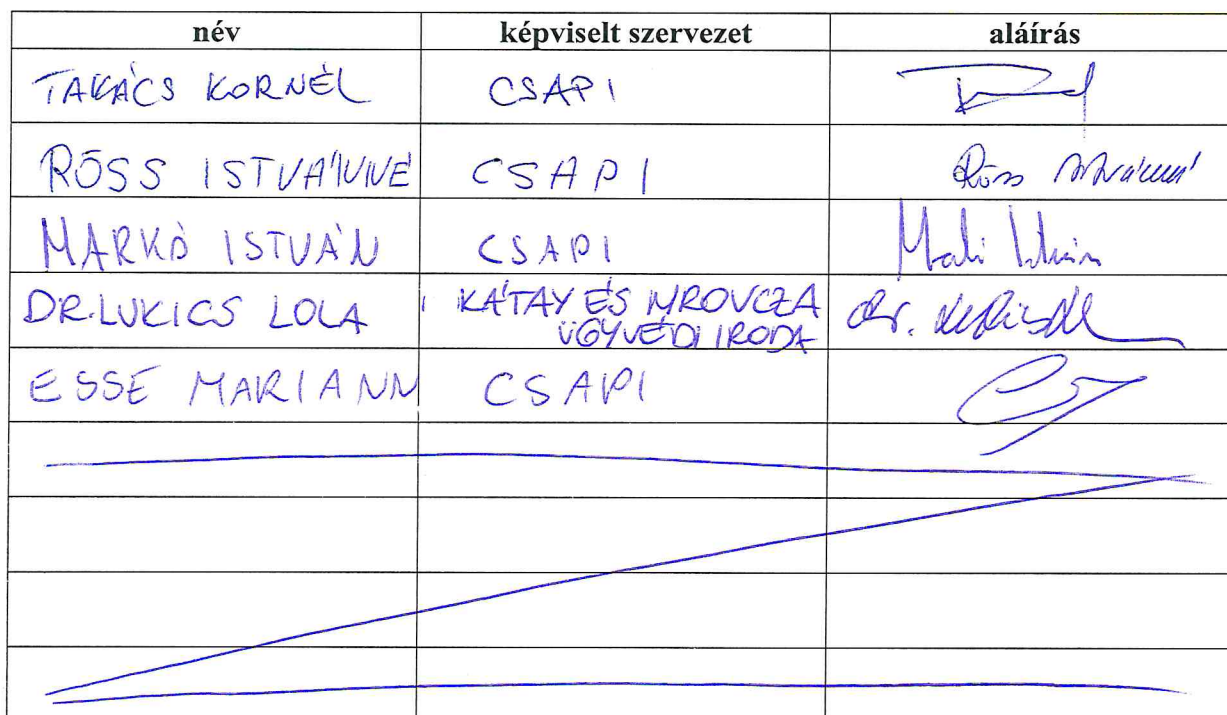 név képviselt szervezet aláírás
TAKÁCS KORNÉL CSAPI
RÖSS ISTVÁNNÉ CSAPI Röss Istvánné
MARKÓ ISTVÁN CSAPI Markó István
DR. LUKICS LOLA KÁTAY ÉS MROVCZA
ÜGYVÉDI IRODA
ESSE MARIANN CSAPI